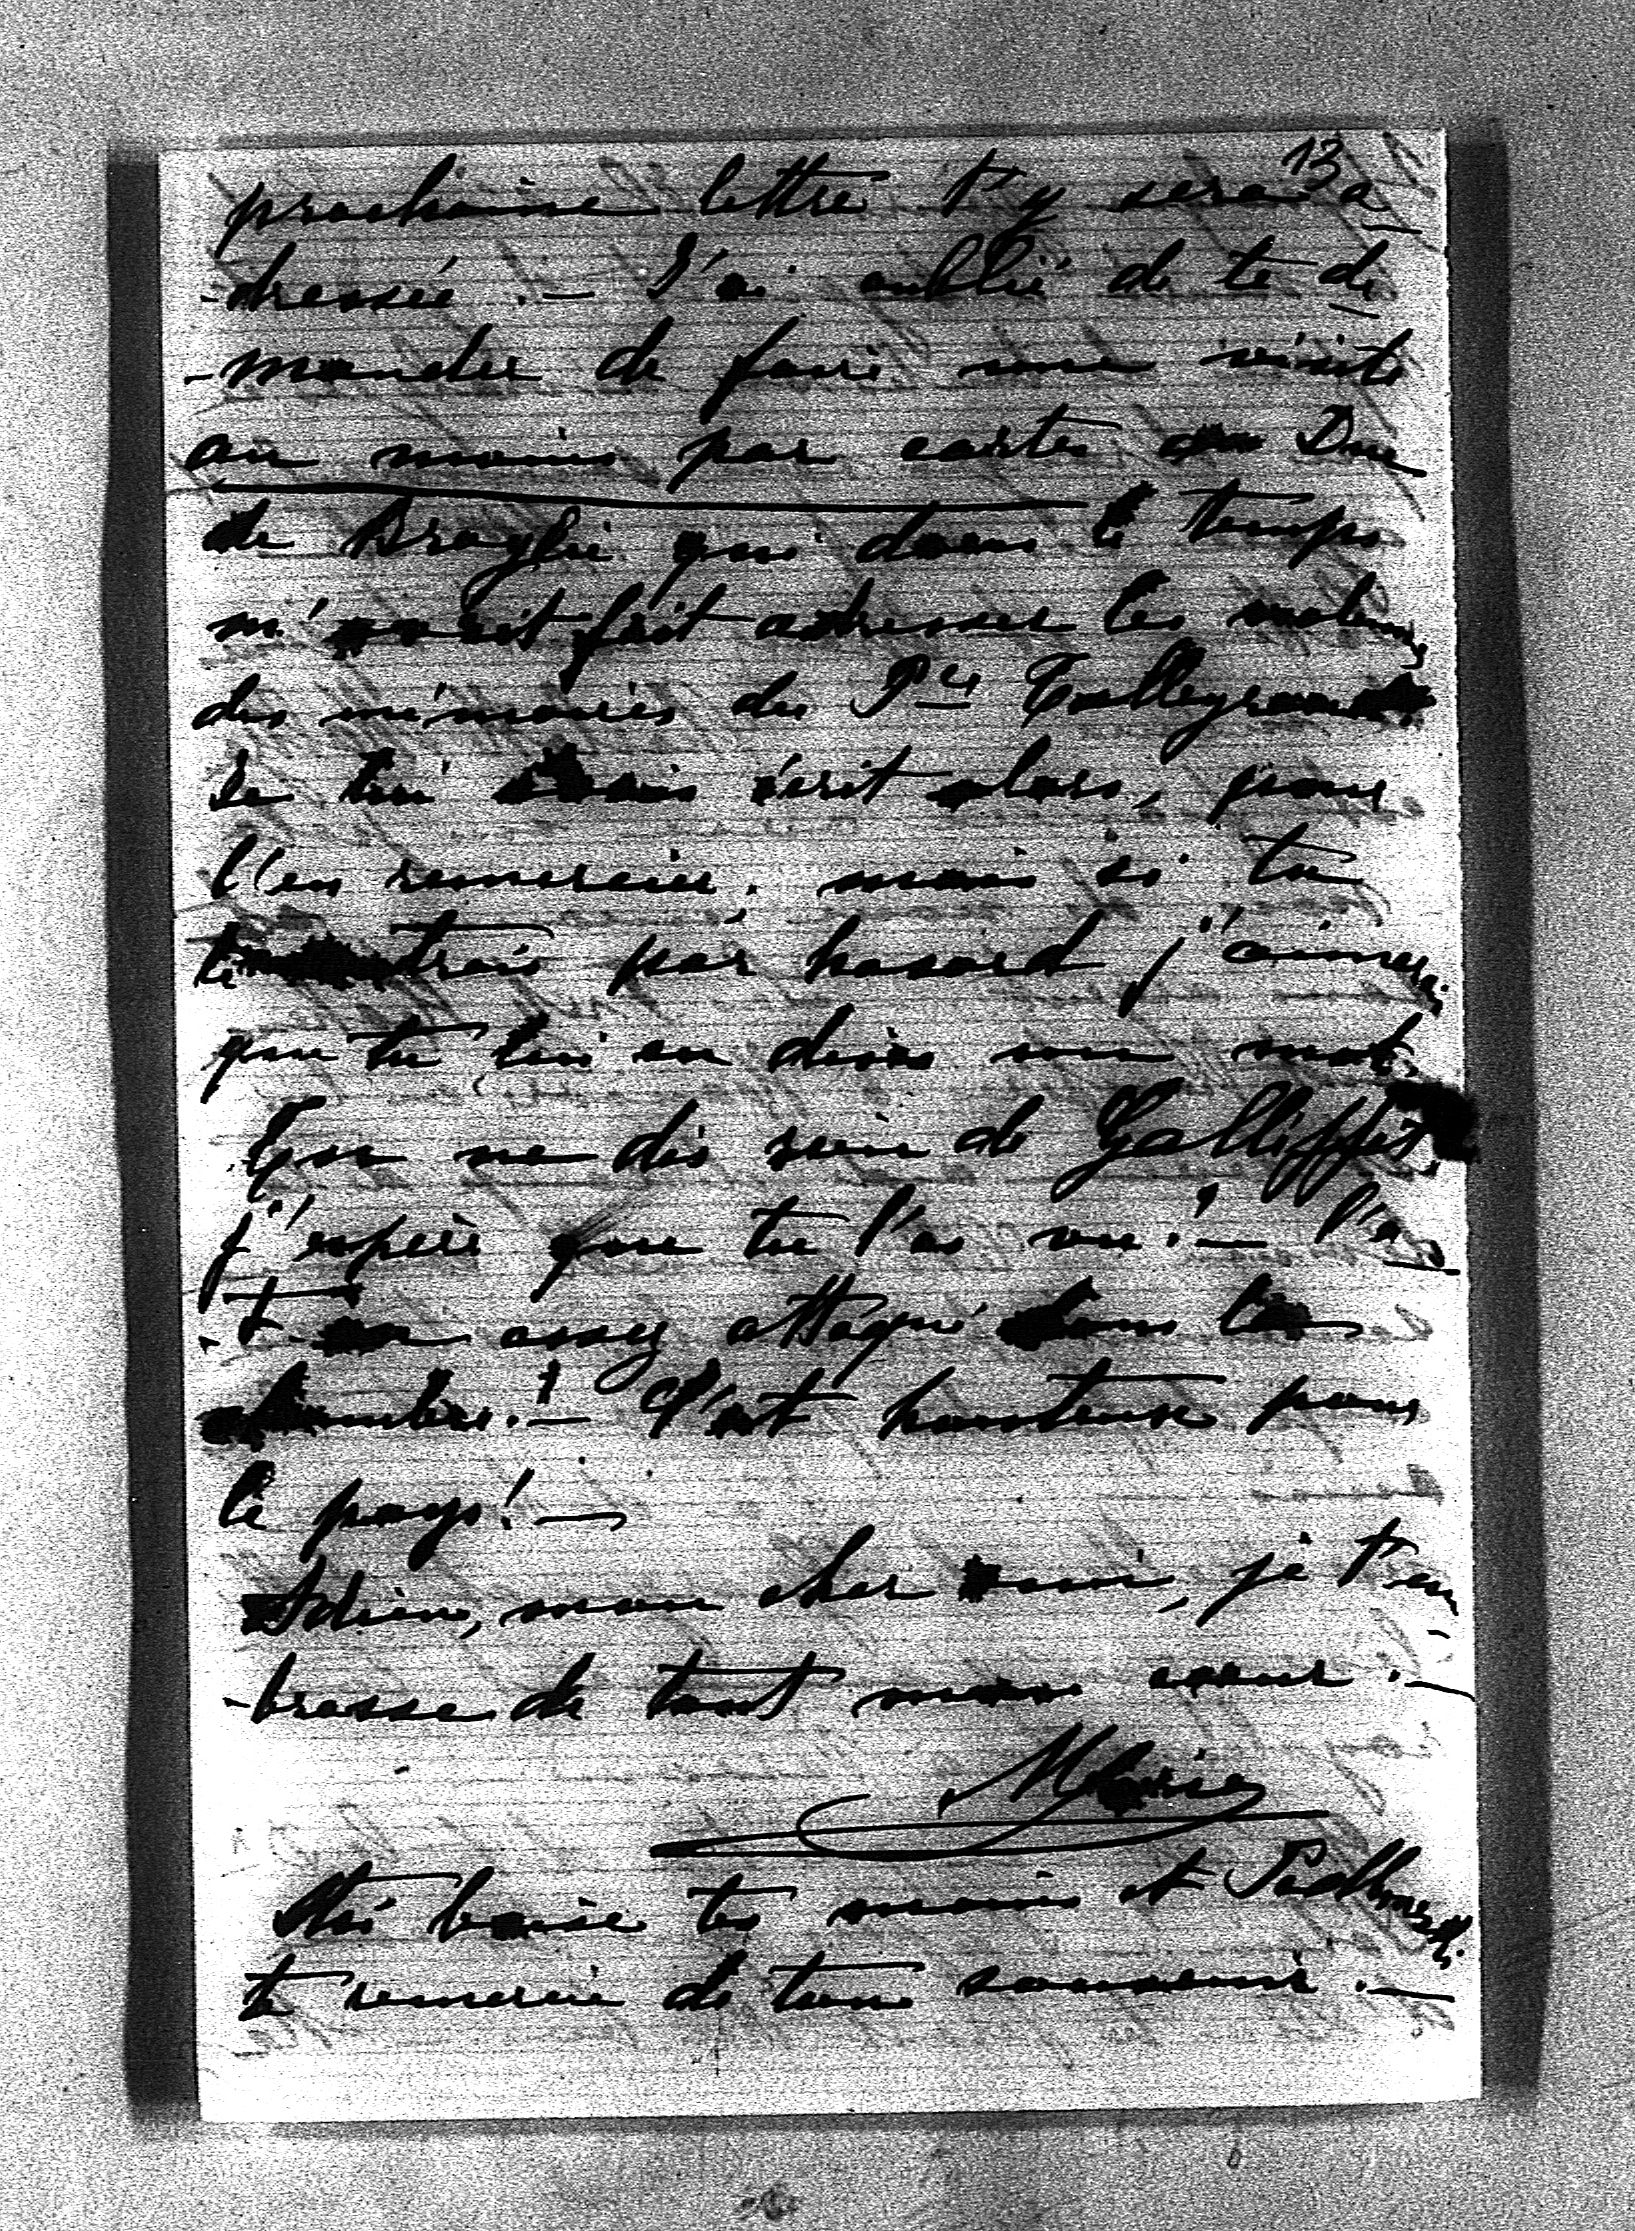 13
prochaine lettre t'y sera a
-dressée. — J'ai oublié de te de
-mander de faire une visite
au moins par cartes au Duc
de Broglie qui dans le temps
m'avait fait adresser les volumes
des mémoires du Pce Talleyrand.
Je lui avais écrit alors, pour
l'en remercier. mais si tu
le par hasard j'aimerai
que tu lui en dises un mot.
Tu ne dis rien de Galliffet.
j'espère que tu l'as vu! — l'a
-t-on assez attaqué dans les
chambres! — C'est honteux pour
le pays! —
Adieu, mon cher ami, je t'em
-brasse de tout mon coeur. —
baise tes mains et
te remercie de ton souvenir. —